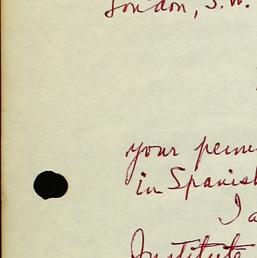 London, S.W.
your
in Spanish
I a
Institute